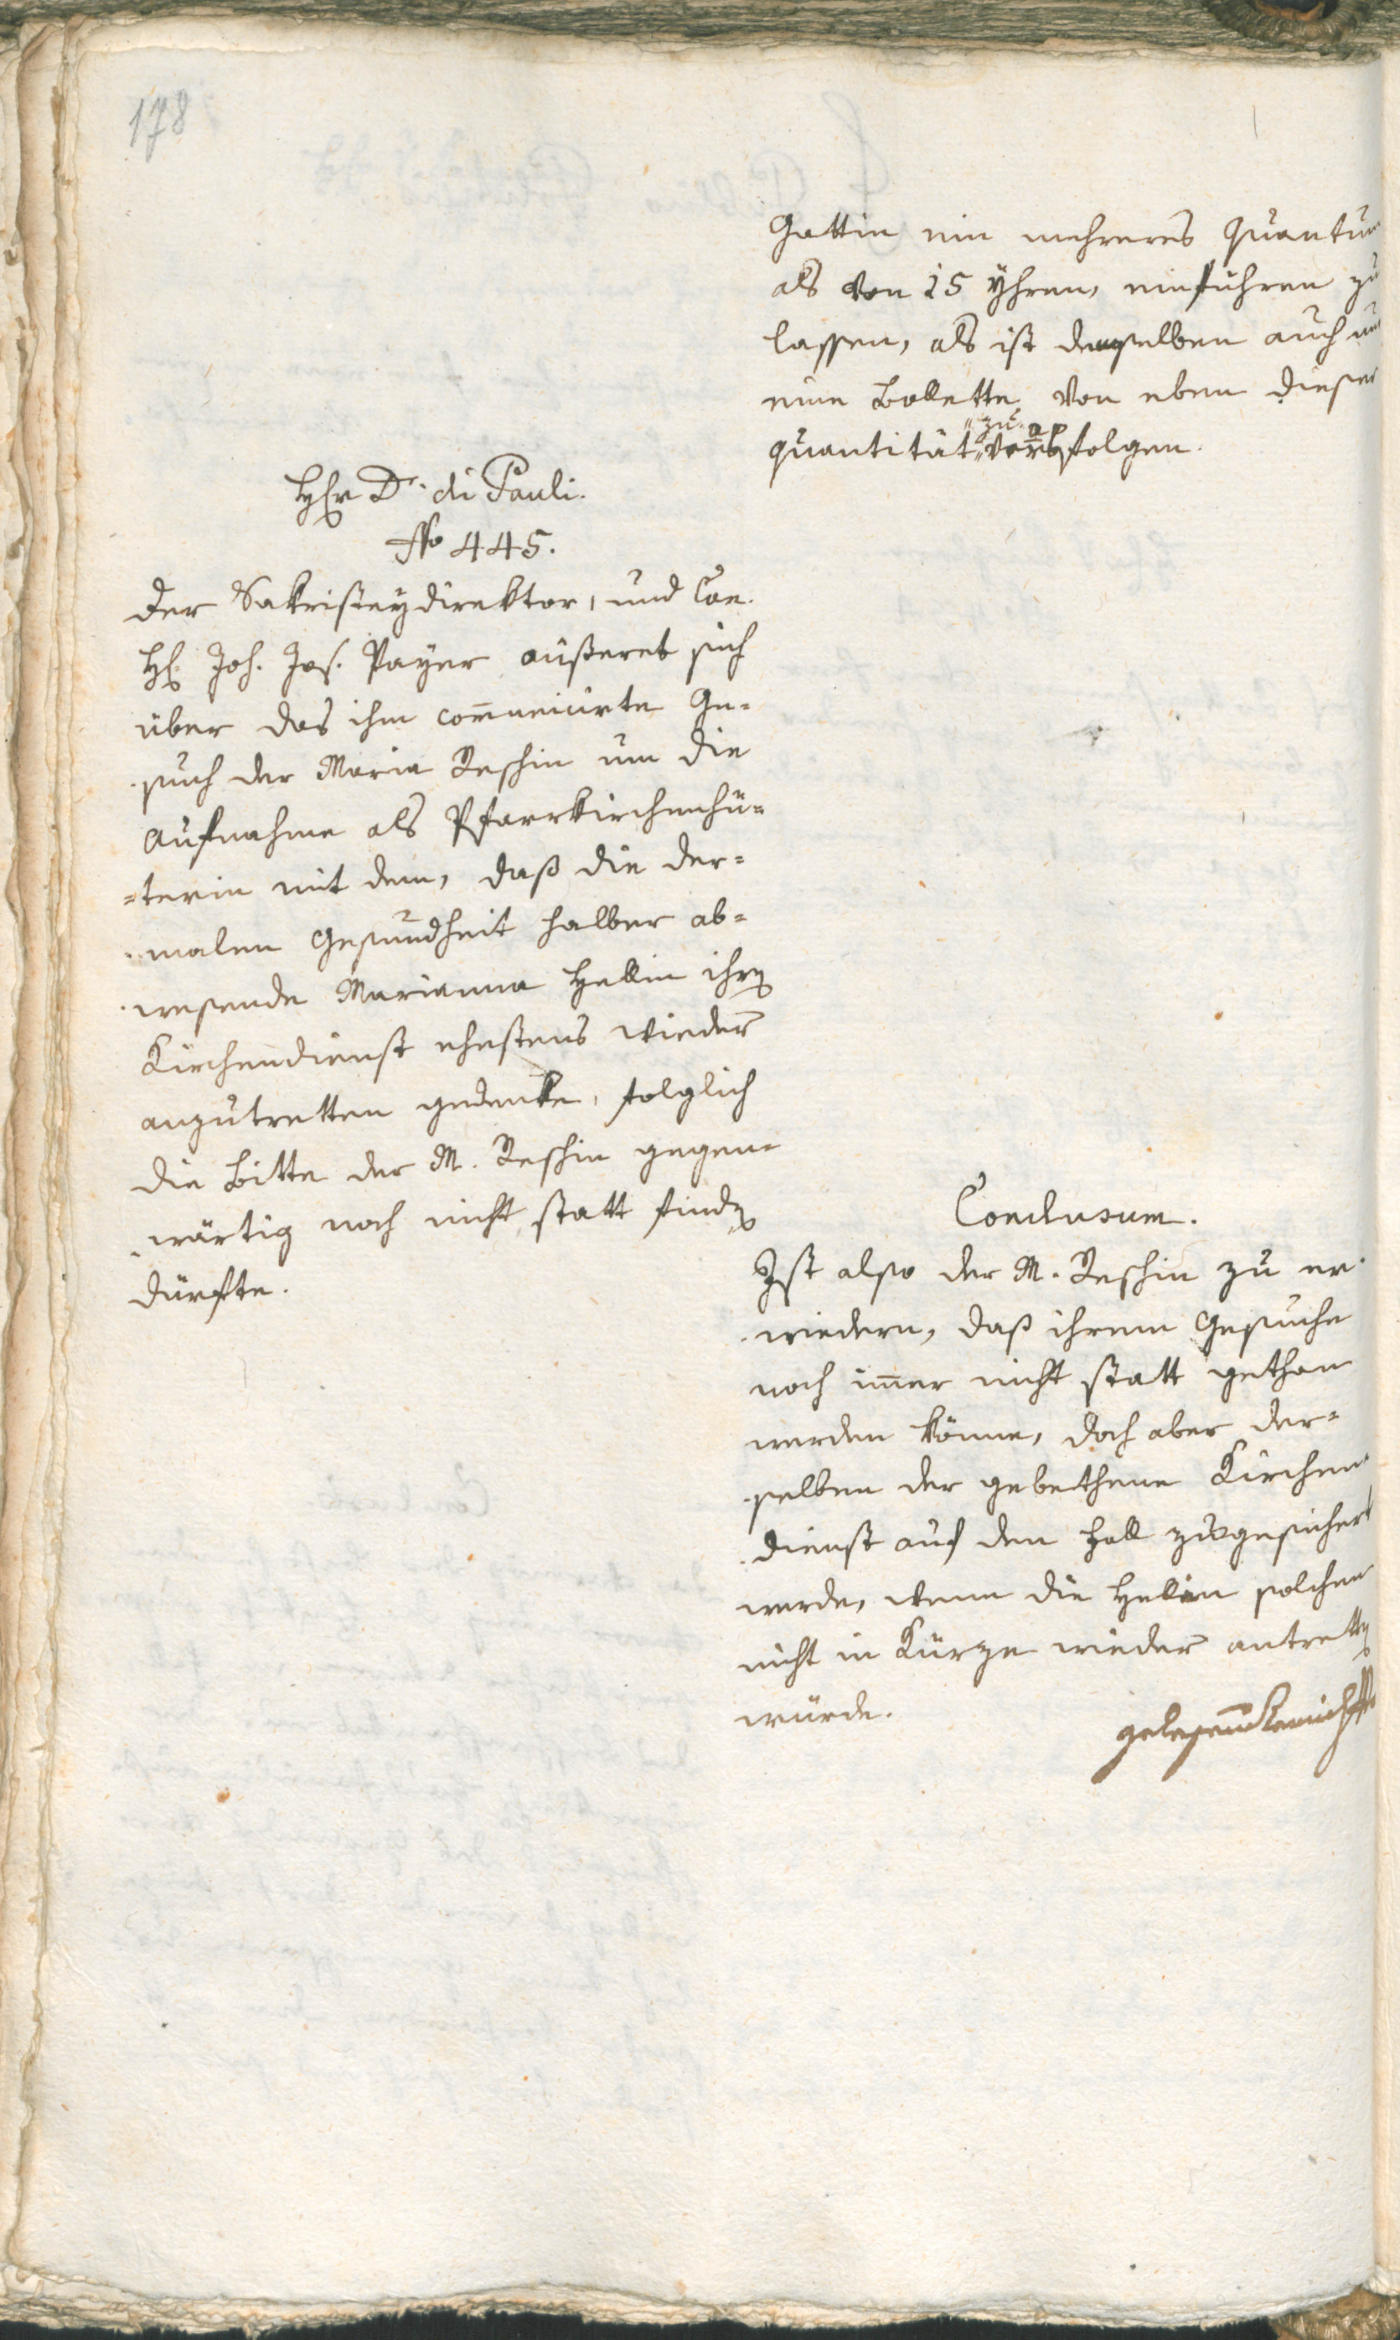 178
Gattin ein mehreres Quantum
als von 15 Yhren, einführen zu
lassen, als ist demselben auch nur
eine Bollette von eben dieser
quantität zu verabfolgen.
Herr Dr. di Pauli.
No 445.
Der Sakristeydirektor, und Con.
H. Joh. Jos. Payer äußeret sich
über das ihm com̄unicirte Ge-
such der Maria Reschin um die
Aufnahme als Pfarrkirchenhü-
terin mit dem, daß die der-
malen Gesundheit halber ab-
wesende Marianna Hellin ihren
Kirchendienst ehestens wieder
anzutretten gedenke, folglich
die Bitte der M. Reschin gegen-
wärtig noch nicht statt finden
dürfte.
Conclusum.
Ist also der M. Reschin zu er-
wiedern, daß ihrem Gesuche
noch im̄er nicht statt gethan
werden könne, doch aber der-
selben der gebethene Kirchen-
dienst auf den Fall zugesichert
werde, wenn die Hellin solchen
nicht in Kürze wieder antretten
würde.